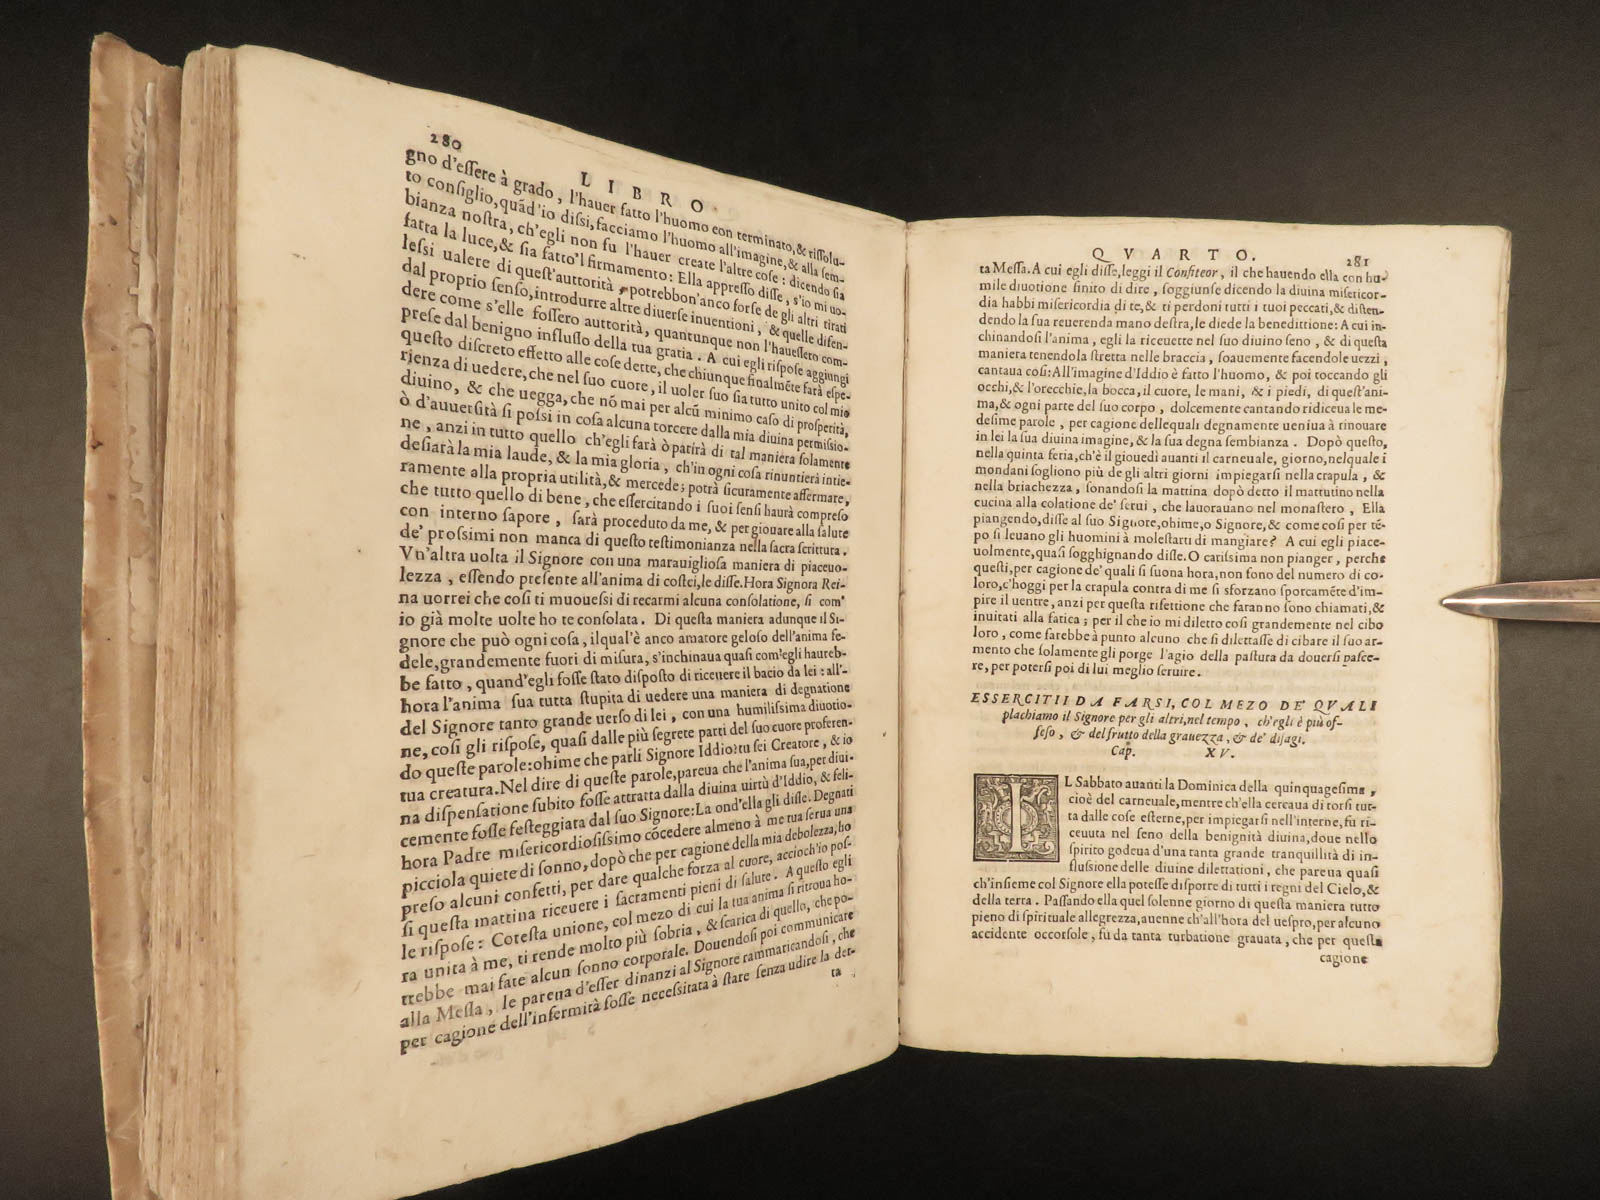 280
LIBRO
gno d'essere à grado, l'hauer fatto l'huomo con terminato, & rissolu-
to consiglio, quãd'io dissi, facciamo l'huomo all'imagine, & alla sem-
bianza nostra, ch'egli non fu l'hauer create l'altre cose: dicendo sia
fatta la luce, & sia fatto'l firmamento: Ella appresso disse, s'io mi uo-
lessi ualere di quest'auttorità, potrebbon'anco forse de gli altri tirati
dal proprio senso, introdurre altre diuerse inuentioni, & quelle difen-
dere come s'elle fossero auttorità, quantunque non l'hauessero com-
prese dal benigno influsso della tua gratia. A cui egli rispose aggiungi
questo discreto effetto alle cose dette, che chiunque finalmẽte farà espe-
rienza di uedere, che nel suo cuore, il uoler suo sia tutto unito col mio
diuino, & che uegga, che nõ mai per alcũ minimo caso di prosperità,
ò d'auuersità si possi in cosa alcuna torcere dalla mia diuina permissio-
ne, anzi in tutto quello ch'egli farà ò patirà di tal maniera solamente
desiarà la mia laude, & la mia gloria, ch'in ogni cosa rinuntierà intie-
ramente alla propria utilità, & mercede; potrà sicuramente affermare,
che tutto quello di bene, che essercitando i suoi sensi haurà compreso
con interno sapore, sarà proceduto da me, & per giouare alla salute
de' prossimi non manca di questo testimonianza nella sacra scrittura.
Vn'altra uolta il Signore con una marauigliosa maniera di piaceuo-
lezza, essendo presente all'anima di costei, le disse. Hora Signora Rei-
na uorrei che così ti muouessi di recarmi alcuna consolatione, sì com'
io già molte uolte ho te consolata. Di questa maniera adunque il Si-
gnore che può ogni cosa, ilqual'è anco amatore geloso dell'anima fe-
dele, grandemente fuori di misura, s'inchinaua quasi com'egli haureb-
be fatto, quand'egli fosse stato disposto di riceuere il bacio da lei: all'-
hora l'anima sua tutta stupita di uedere una maniera di degnatione
del Signore tanto grande uerso di lei, con una humilissima diuotio-
ne, così gli rispose, quasi dalle più segrete parti del suo cuore proferen-
do queste parole: ohime che parli Signore Iddio: tu sei Creatore, & io
tua creatura. Nel dire di queste parole, pareua che l'anima sua, per diui-
na dispensatione subito fosse attratta dalla diuina uirtù d'Iddio, & feli-
cemente fosse festeggiata dal suo Signore: La ond'ella gli disse. Degnati
hora Padre misericordiosissimo cõcedere almeno à me tua serua una
picciola quiete di sonno, dopò che per cagione della mia debolezza, ho
preso alcuni confetti, per dare qualche forza al cuore, acciochio pos-
si questa mattina riceuere i sacramenti pieni di salute. A questo egli
le rispose: Cotesta unione, col mezo di cui la tua anima si ritroua ho-
ra unita à me, ti rende molto più sobria, & scarica di quello, che po-
trebbe mai fare alcun sonno corporale. Douendosi poi communicare
alla Messa, le pareua d'esser dinanzi al Signore rammaticandosi, che
per cagione dell'infermità fosse necessitata à stare senza udire la det-
ta
QVARTO.
281
ta Messa. A cui egli disse, leggi il Confiteor, il che hauendo ella con hu-
mile diuotione finito di dire, soggiunse dicendo la diuina misericor-
dia habbi misericordia di te, & ti perdoni tutti i tuoi peccati, & disten-
dendo la sua reuerenda mano destra, le diede la benedittione: A cui in-
chinandosi l'anima, egli la riceuette nel suo diuino seno, & di questa
maniera tenendola stretta nelle braccia, soauemente facendole uezzi,
cantaua così: All'imagine d'Iddio è fatto l'huomo, & poi toccando gli
occhi, & l'orecchie, la bocca, il cuore, le mani, & i piedi, di quest'ani-
ma, & ogni parte del suo corpo, dolcemente cantando ridiceua le me-
desime parole, per cagione dellequali degnamente ueniua à rinouare
in lei la sua diuina imagine, & la sua degna sembianza. Dopò questo,
nella quinta feria, ch'è il giouedì auanti il carneuale, giorno, nelquale i
mondani sogliono più de gli altri giorni impiegarsi nella crapula, &
nella briachezza, sonandosi la mattina dopò detto il mattutino nella
cucina alla colatione de' serui, che lauorauano nel monastero, Ella
piangendo, disse al suo Signore, ohime, o Signore, & come così per tẽ-
po si leuano gli huomini à molestarti di mangiare? A cui egli piace-
uolmente, quasi sogghignando disse. O carissima non pianger, perche
questi, per cagione de' quali si suona hora, non sono del numero di co-
loro, c'hoggi per la crapula contra di me si sforzano sporcamẽte d'im-
pire il uentre, anzi per questa rifettione che faranno sono chiamati, &
inuitati alla fatica; per il che io mi diletto così grandemente nel cibo
loro, come farebbe à punto alcuno che si dilettasse di cibare il suo ar-
mento che solamente gli porge l'agio della pastura da douersi pasce-
re, per potersi poi di lui meglio seruire.
ESSERCITII DA FARSI, COL MEZO DE' QVALI
plachiamo il Signore per gli altri, nel tempo, ch'egli è più of-
feso, & del frutto della grauezza, & de' disagi.
Cap. XV.
IL Sabbato auanti la Dominica della quinquagesima,
cioè del carneuale, mentre ch'ella cercaua di torsi tut-
ta dalle cose esterne, per impiegarsi nell'interne, fu ri-
ceuuta nel seno della benignità diuina, doue nello
spirito godeua d'una tanta grande tranquillità di in-
flussione delle diuine dilettationi, che pareua quasi
ch'insieme col Signore ella potesse disporre di tutti i regni del Cielo, &
della terra. Passando ella quel solenne giorno di questa maniera tutto
pieno di spirituale allegrezza, auenne ch'all'hora del uespro, per alcuno
accidente occorsole, fu da tanta turbatione grauata, che per questa
cagione